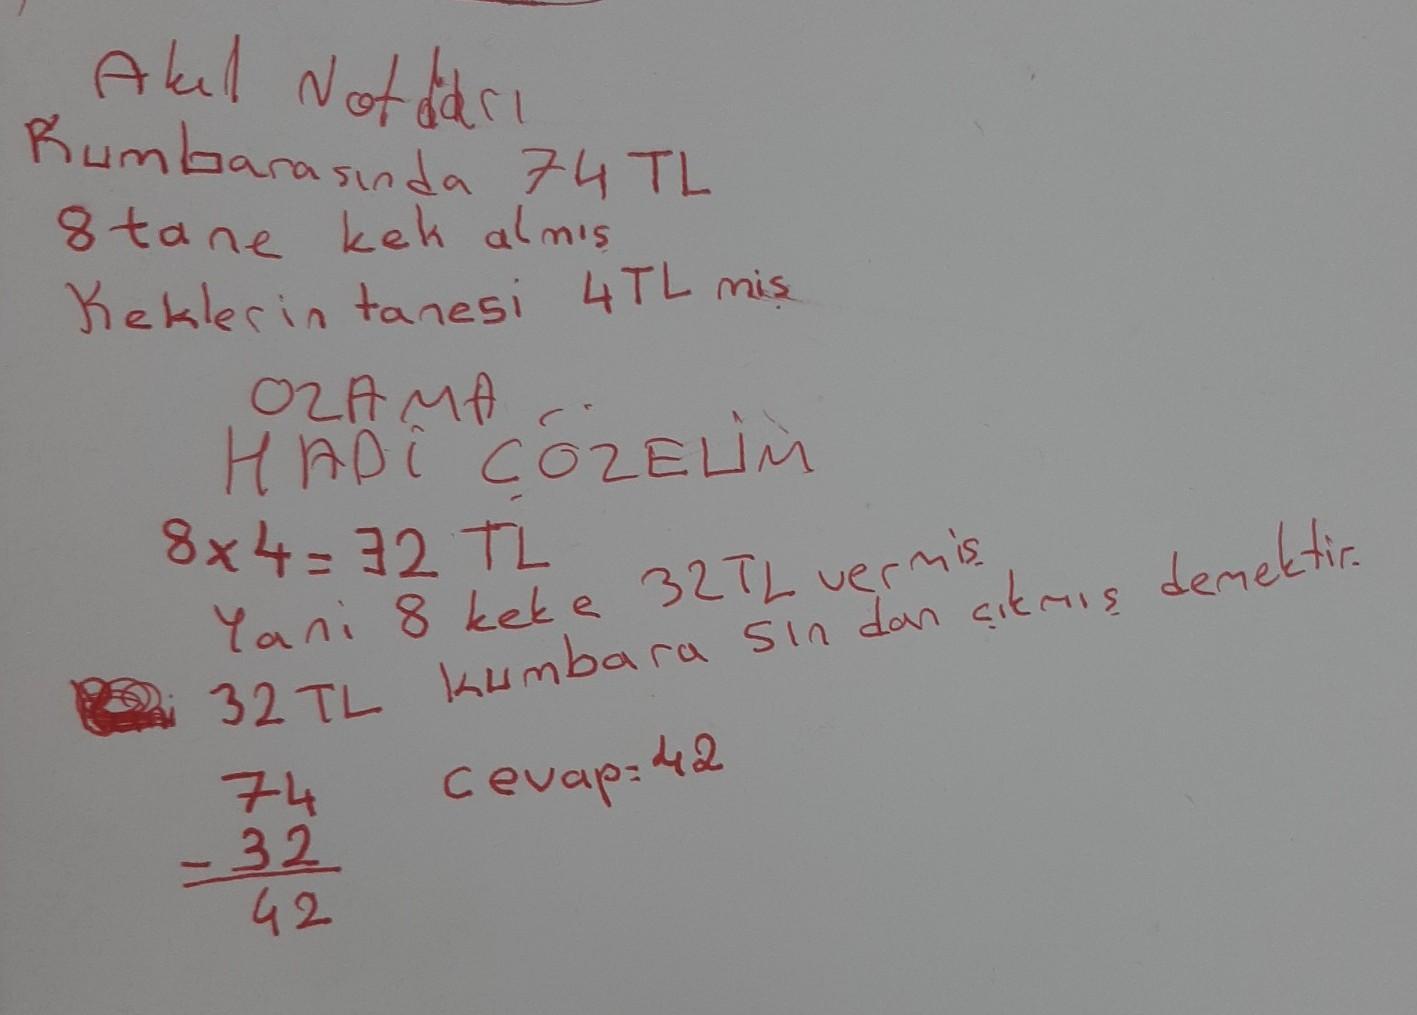 Akıl Notları
Kumbarasında 74 TL
8 tane kek almış
Keklerin tanesi 4TL miş
OZAMA
HADİ ÇÖZELİM
8x4=32 TL
Yani 8 keke 32TL vermiş
32 TL kumbarasından çıkmış demektir.
74 cevap=42
- 32
42